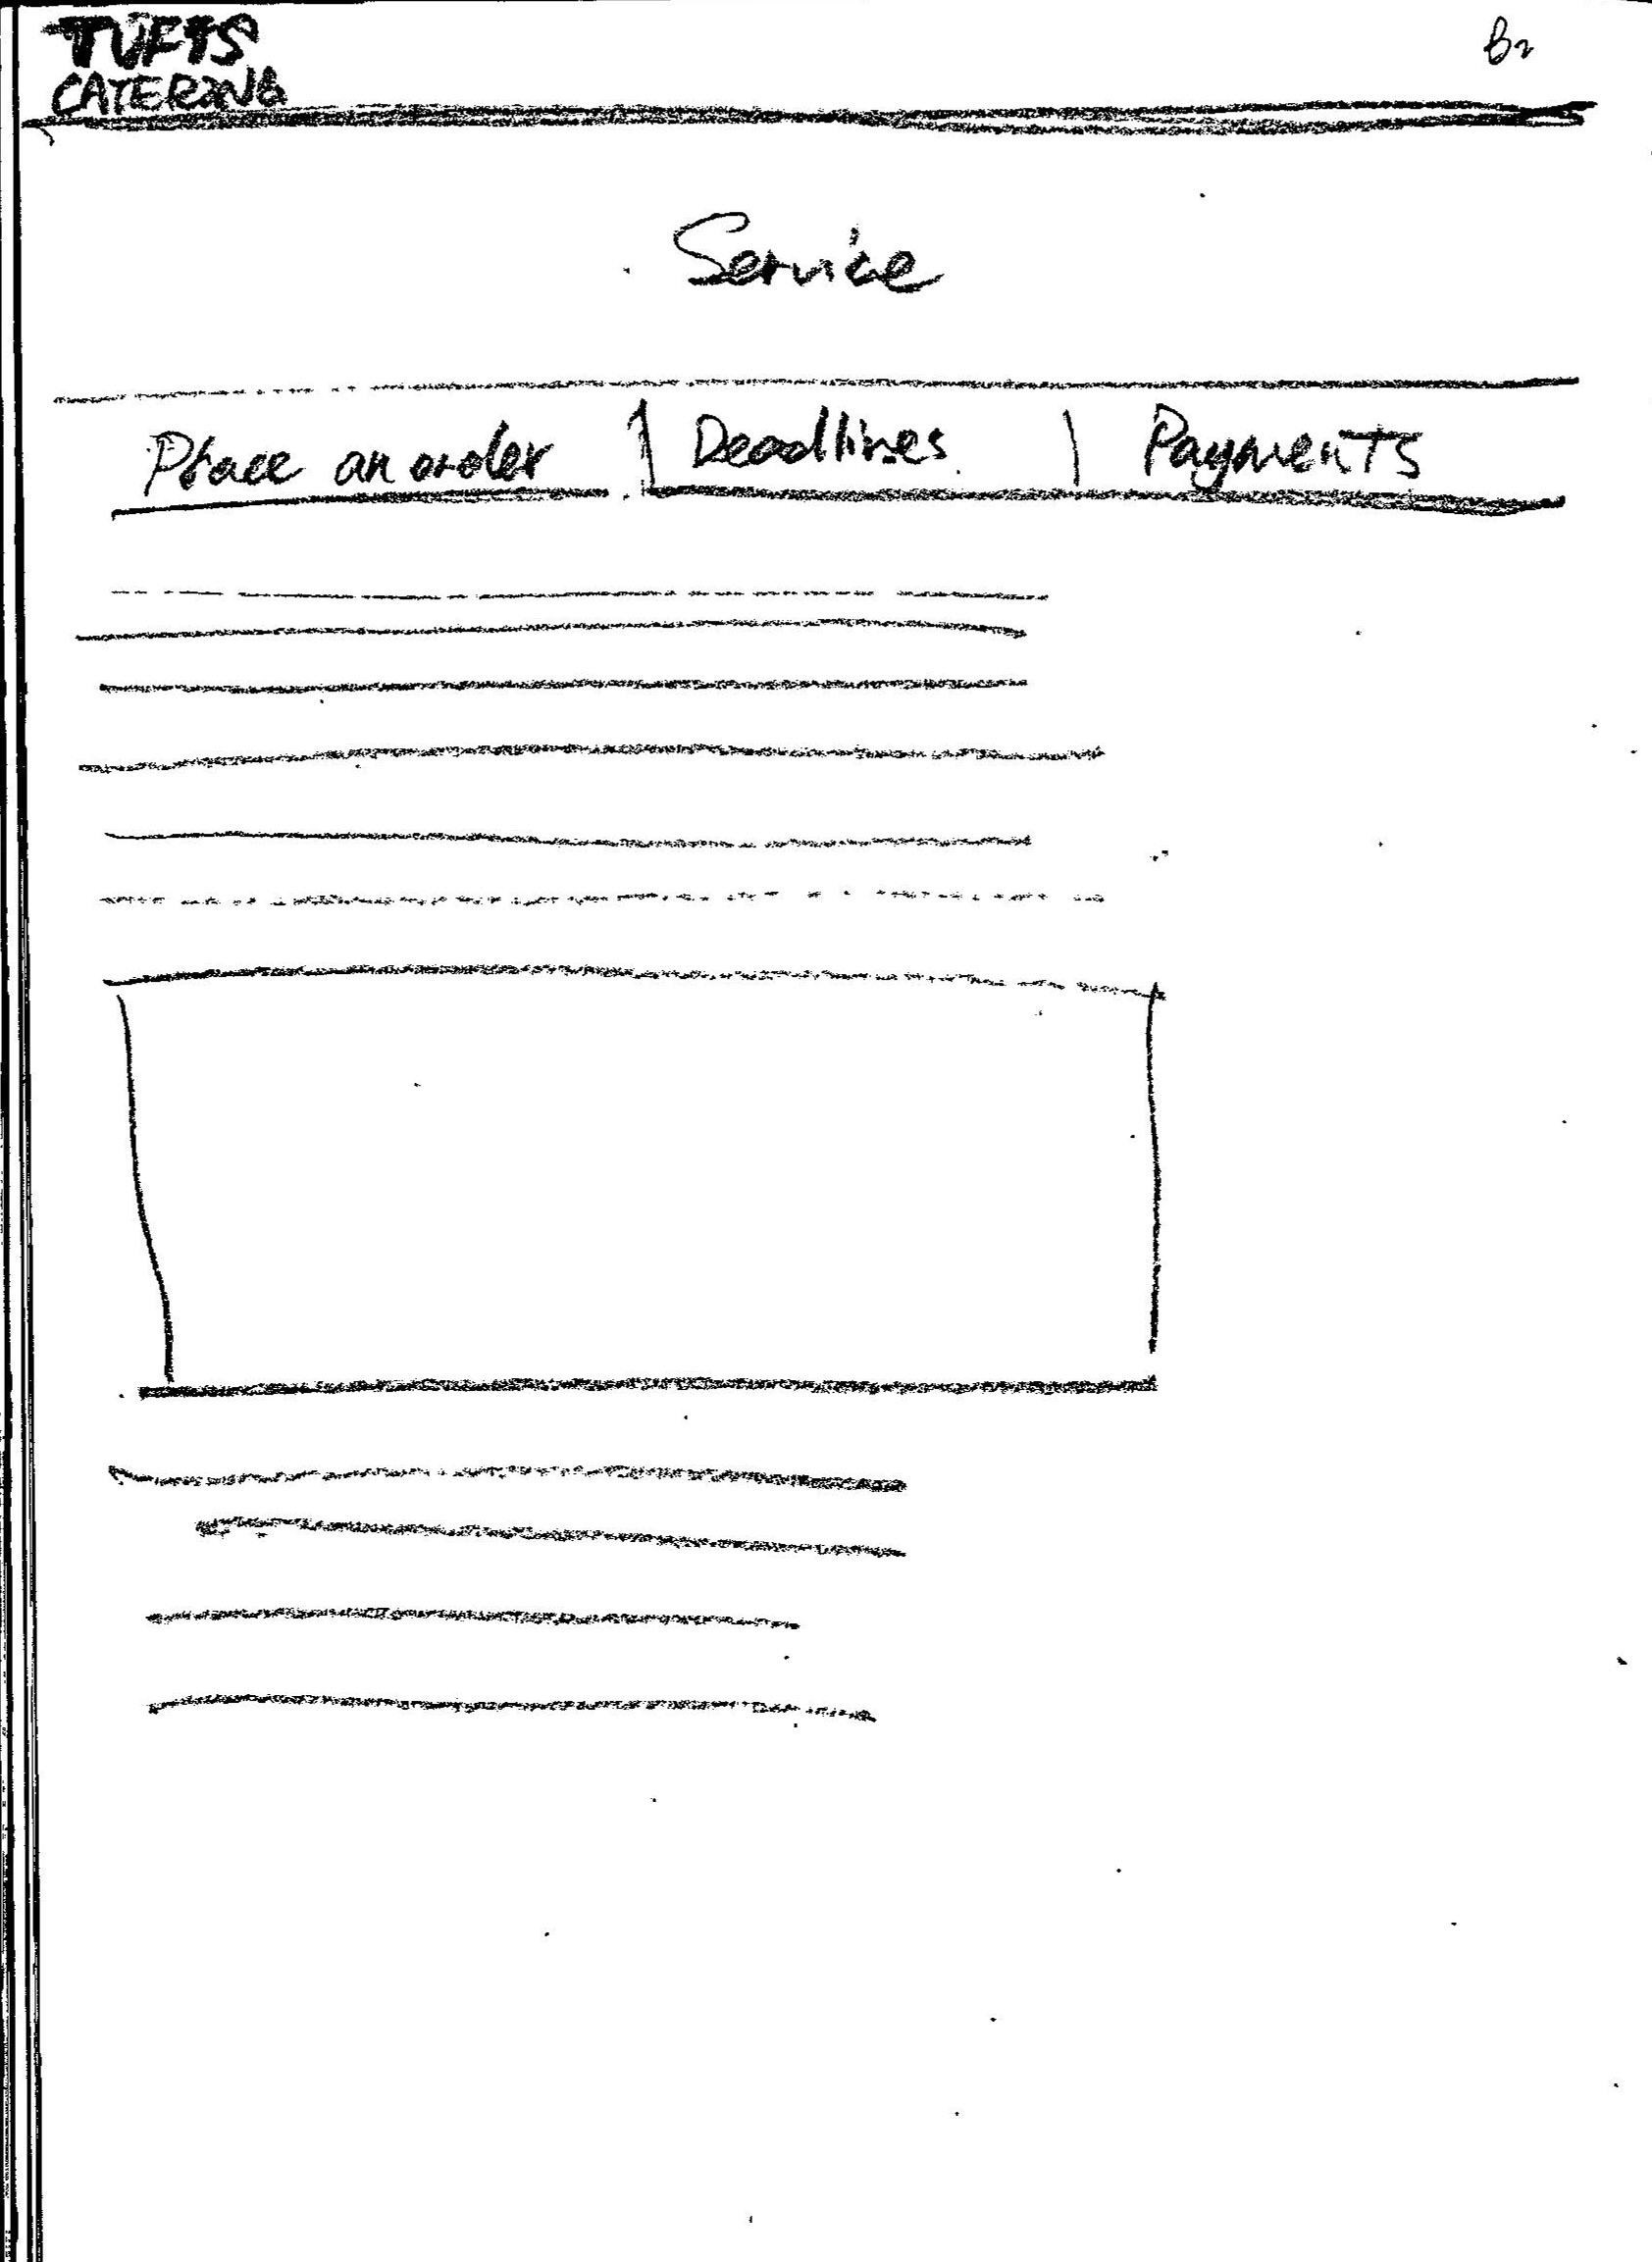 TUFTS
CATERING
B2
Service
Place an order | Deadlines | Payments